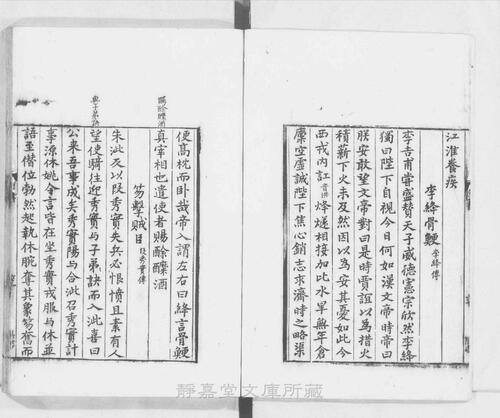 江淮養疾
李絳骨鯁 李絳傳
李吉甫嘗盛賛天子威德憲宗欣然李絳
獨曰陛下自視今日何如漢文帝時帝曰
朕安敢望文帝對曰是時賈誼以為措火
積薪下火未及然因以為安其憂如此今
西戎內訌 烽燧相接加比水旱無年倉
廩空虛誠陛下焦心銷志求濟時之略渠
便高枕而卧哉帝入謂左右曰絳言骨鯁
真宰相也遣使者賜酴醾酒
賜酴醾酒
笏擊賊目 段秀實傳
朱泚反以段秀實失兵必恨憤且素有人
望使騎往迎秀實與子弟訣而入泚喜曰
與子弟訣
公來吾事成矣秀實陽與合泚召秀實計
事源休姚令言皆在坐秀實戎服與休並
語至僭位勃然起執休腕奪其象笏奮而
静嘉堂文庫所蔵